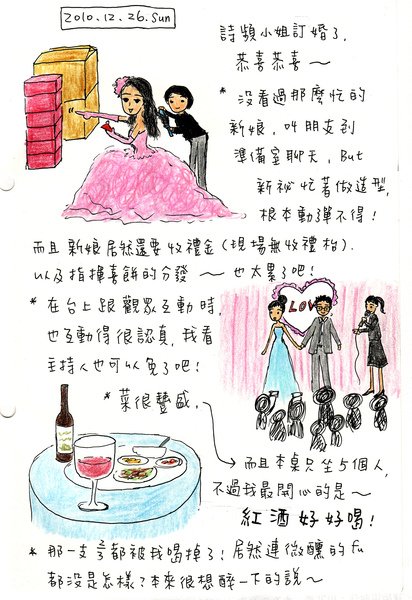 2010.12.26.Sun
詩頻小姐訂婚了,
恭喜恭喜～
* 沒看過那麼忙的
新娘,叫朋友到
準備室聊天,But
新祕忙著做造型,
根本動彈不得!
而且新娘居然還要收禮金(現場無收禮枱).
以及指揮喜餅的分發～也太累了吧!
* 在台上跟觀眾互動時,
也互動得很認真,我看
主持人也可以免了吧!
LOVE
* 菜很豐盛,
而且本桌只坐5個人,
不過我最開心的是～
紅酒好好喝!
* 那一支多都被我喝掉了!居然連微醺的fu
都沒是怎樣?本來很想醉一下的說～